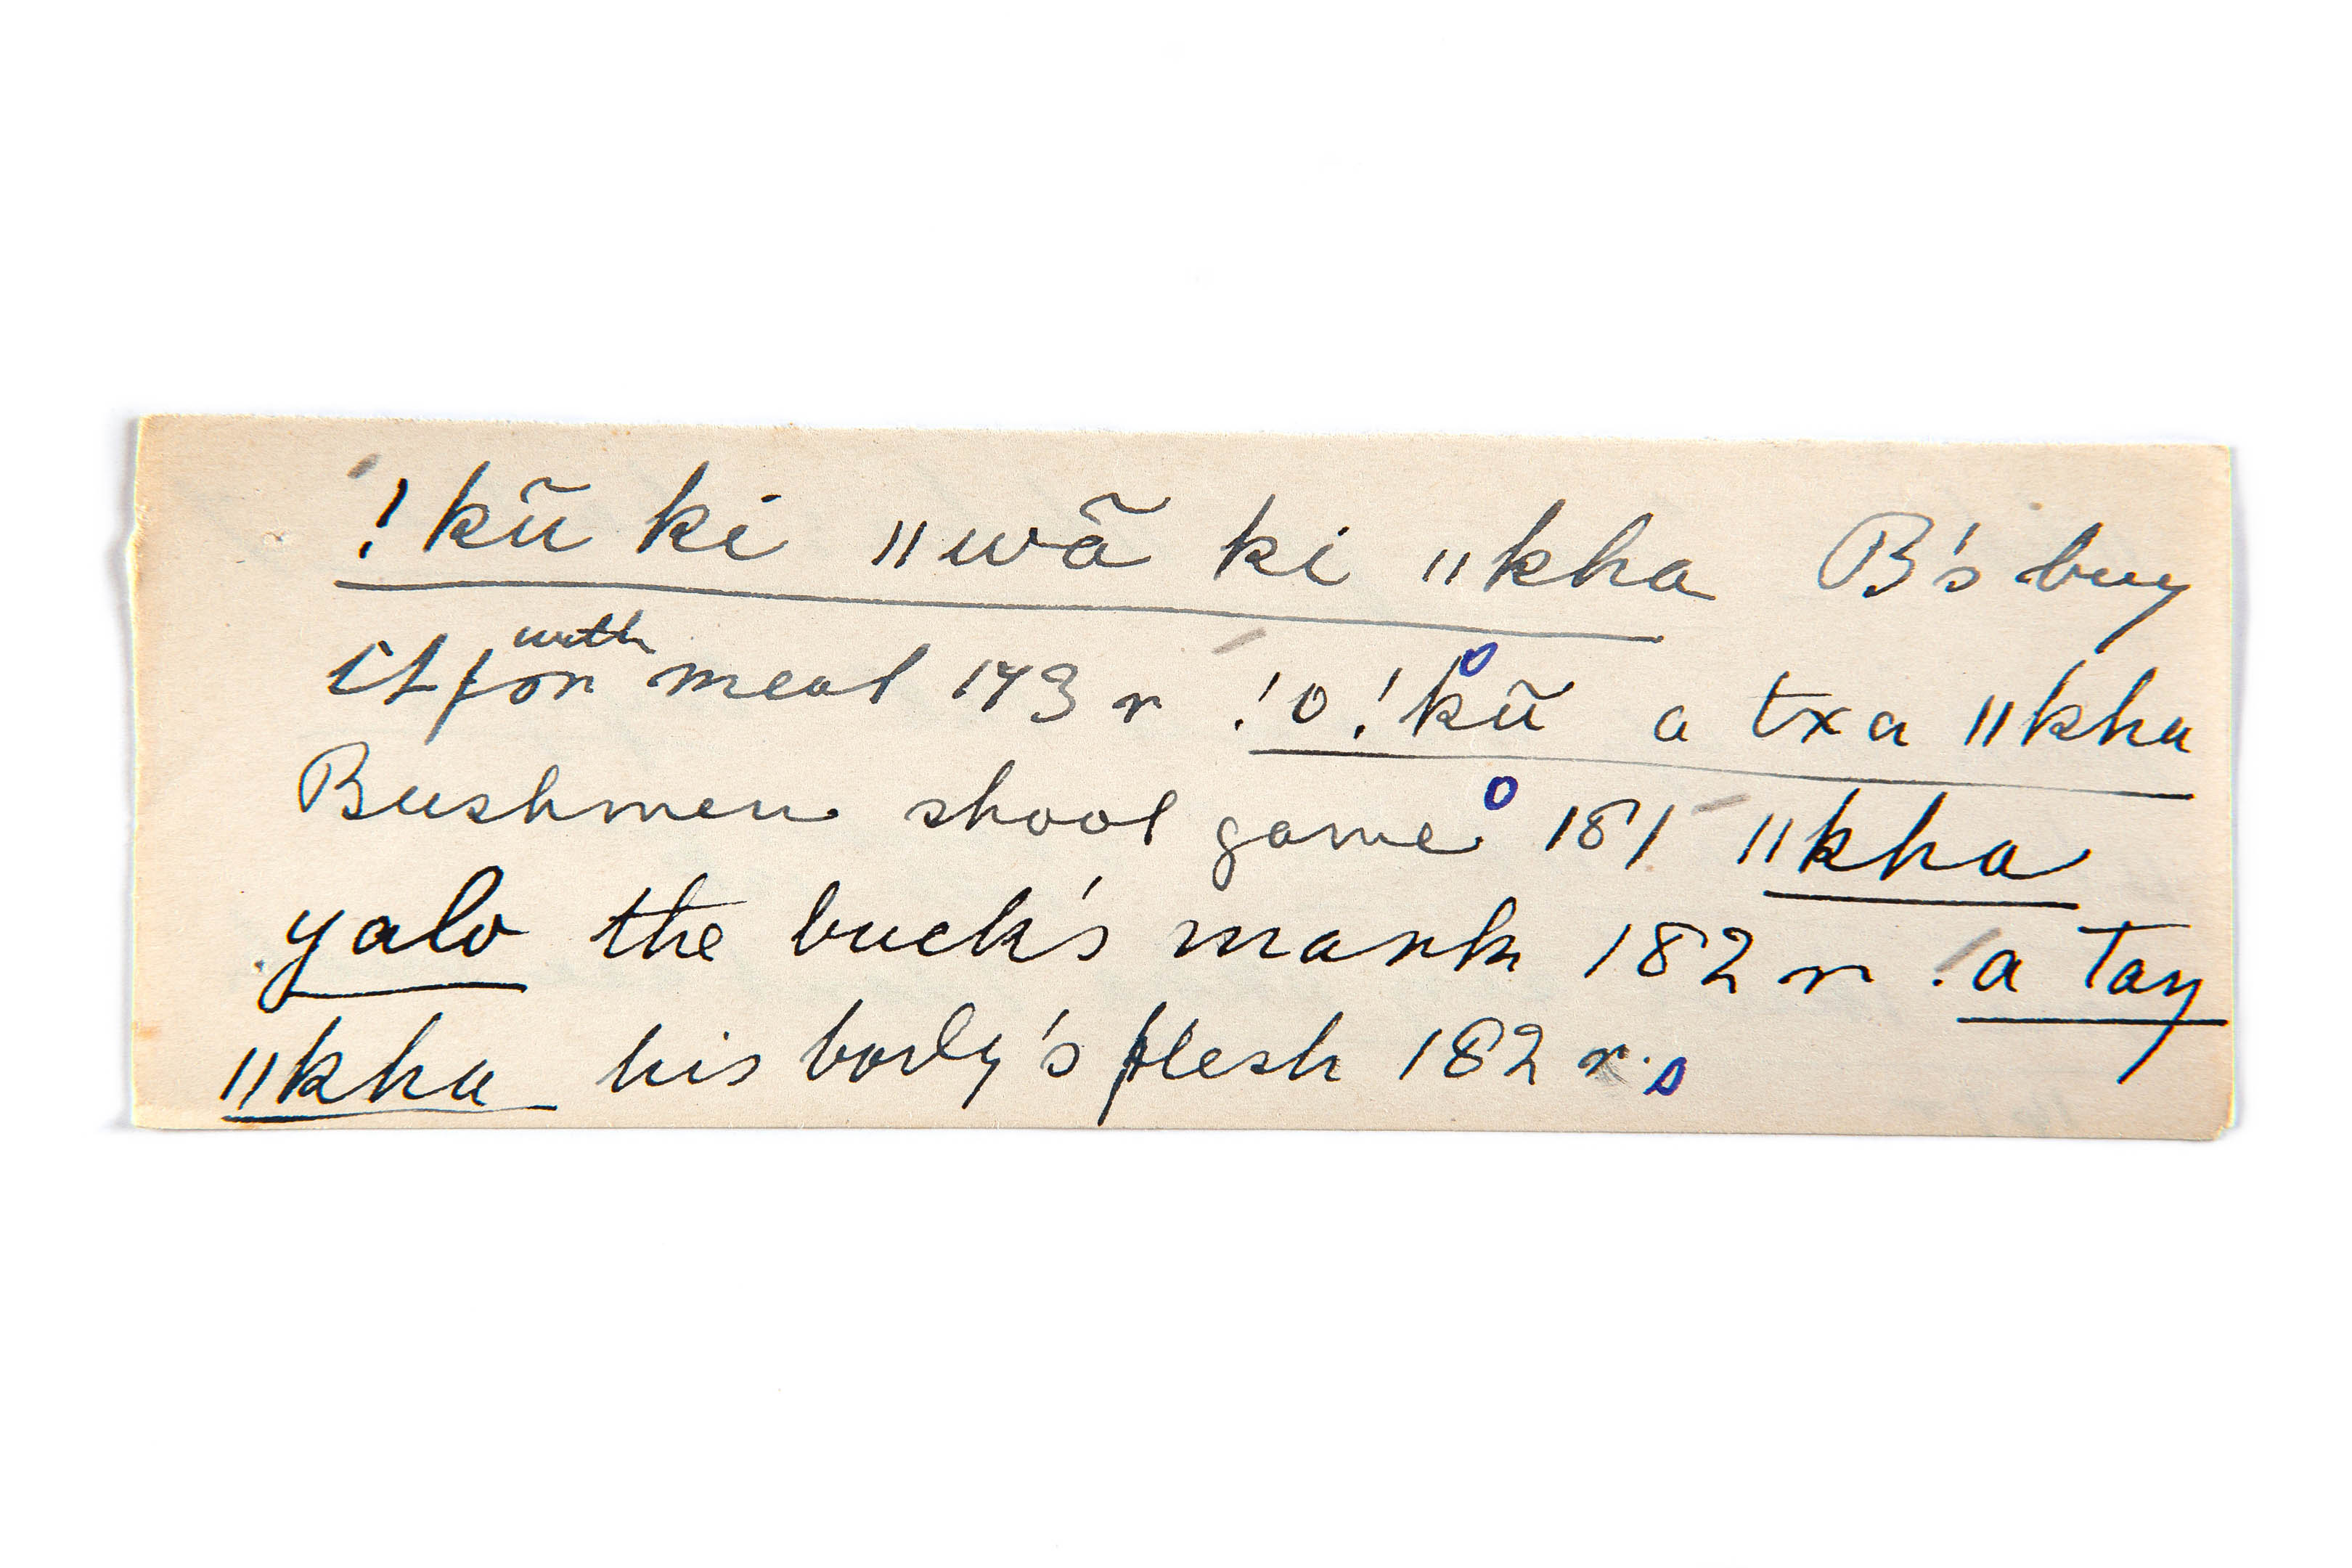 !kũ ki ǁwã ki ǁkha B's buy
it for with meat 173 r !o!kũ a txa ǁkha
Bushmen shoot game 181 ǁkha
yalo the buck's mark 182 r !a taŋ
ǁkha his body's flesh 182 r.